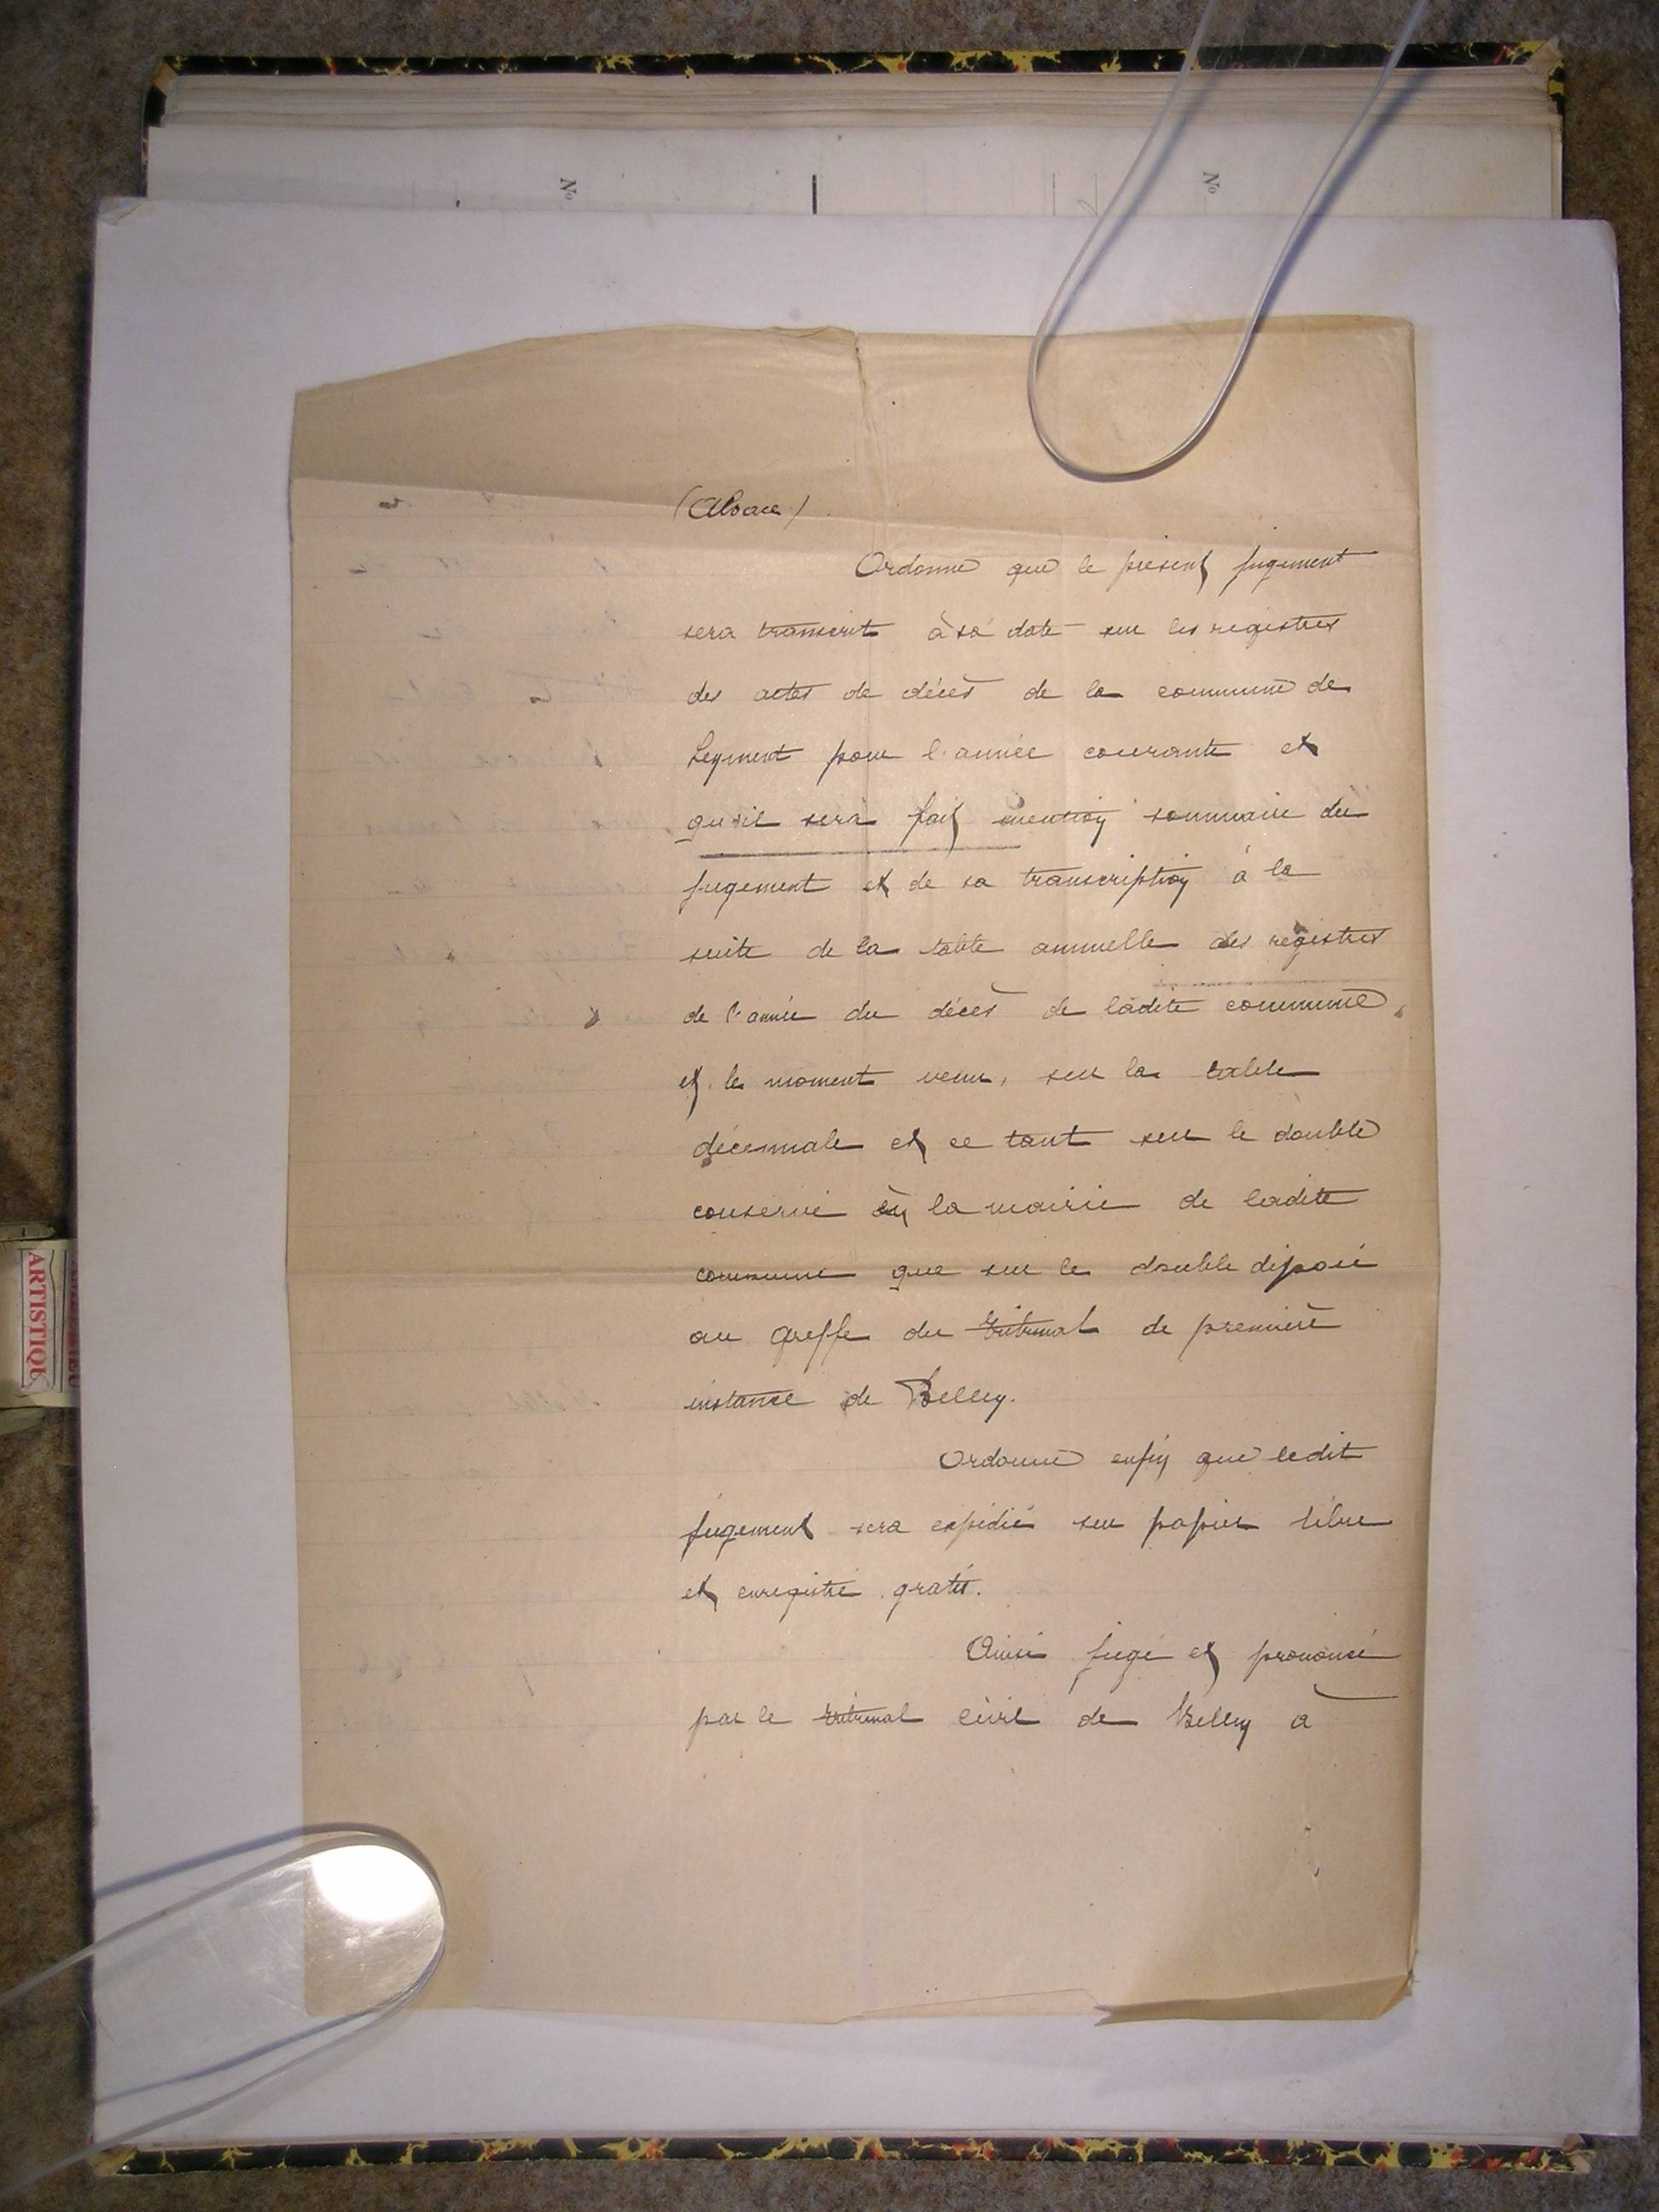 N°
N°
(Alsace)
Ordonne que le présent jugement
sera transcrit à sa date sur les registres
des actes de décès de la commune de
Leyment pour l'année courante et
qu'il sera fait mention sommaire du
jugement et de sa transcription à la
suite de la table annuelle des registres
de l'année du décès de ladite commune
et le moment venu, sur la table
décennale et ce tant sur le double
conservé en la mairie de ladite
commune que sur le double déposé
au greffe du tribunal de première
instance de Belley.
Ordonne enfin que ledit
jugement sera expédié sur papier libre
et enregistré gratis.
Ainsi jugé et prononcé
par le tribunal civil de Belley à
ARTISTIQUE